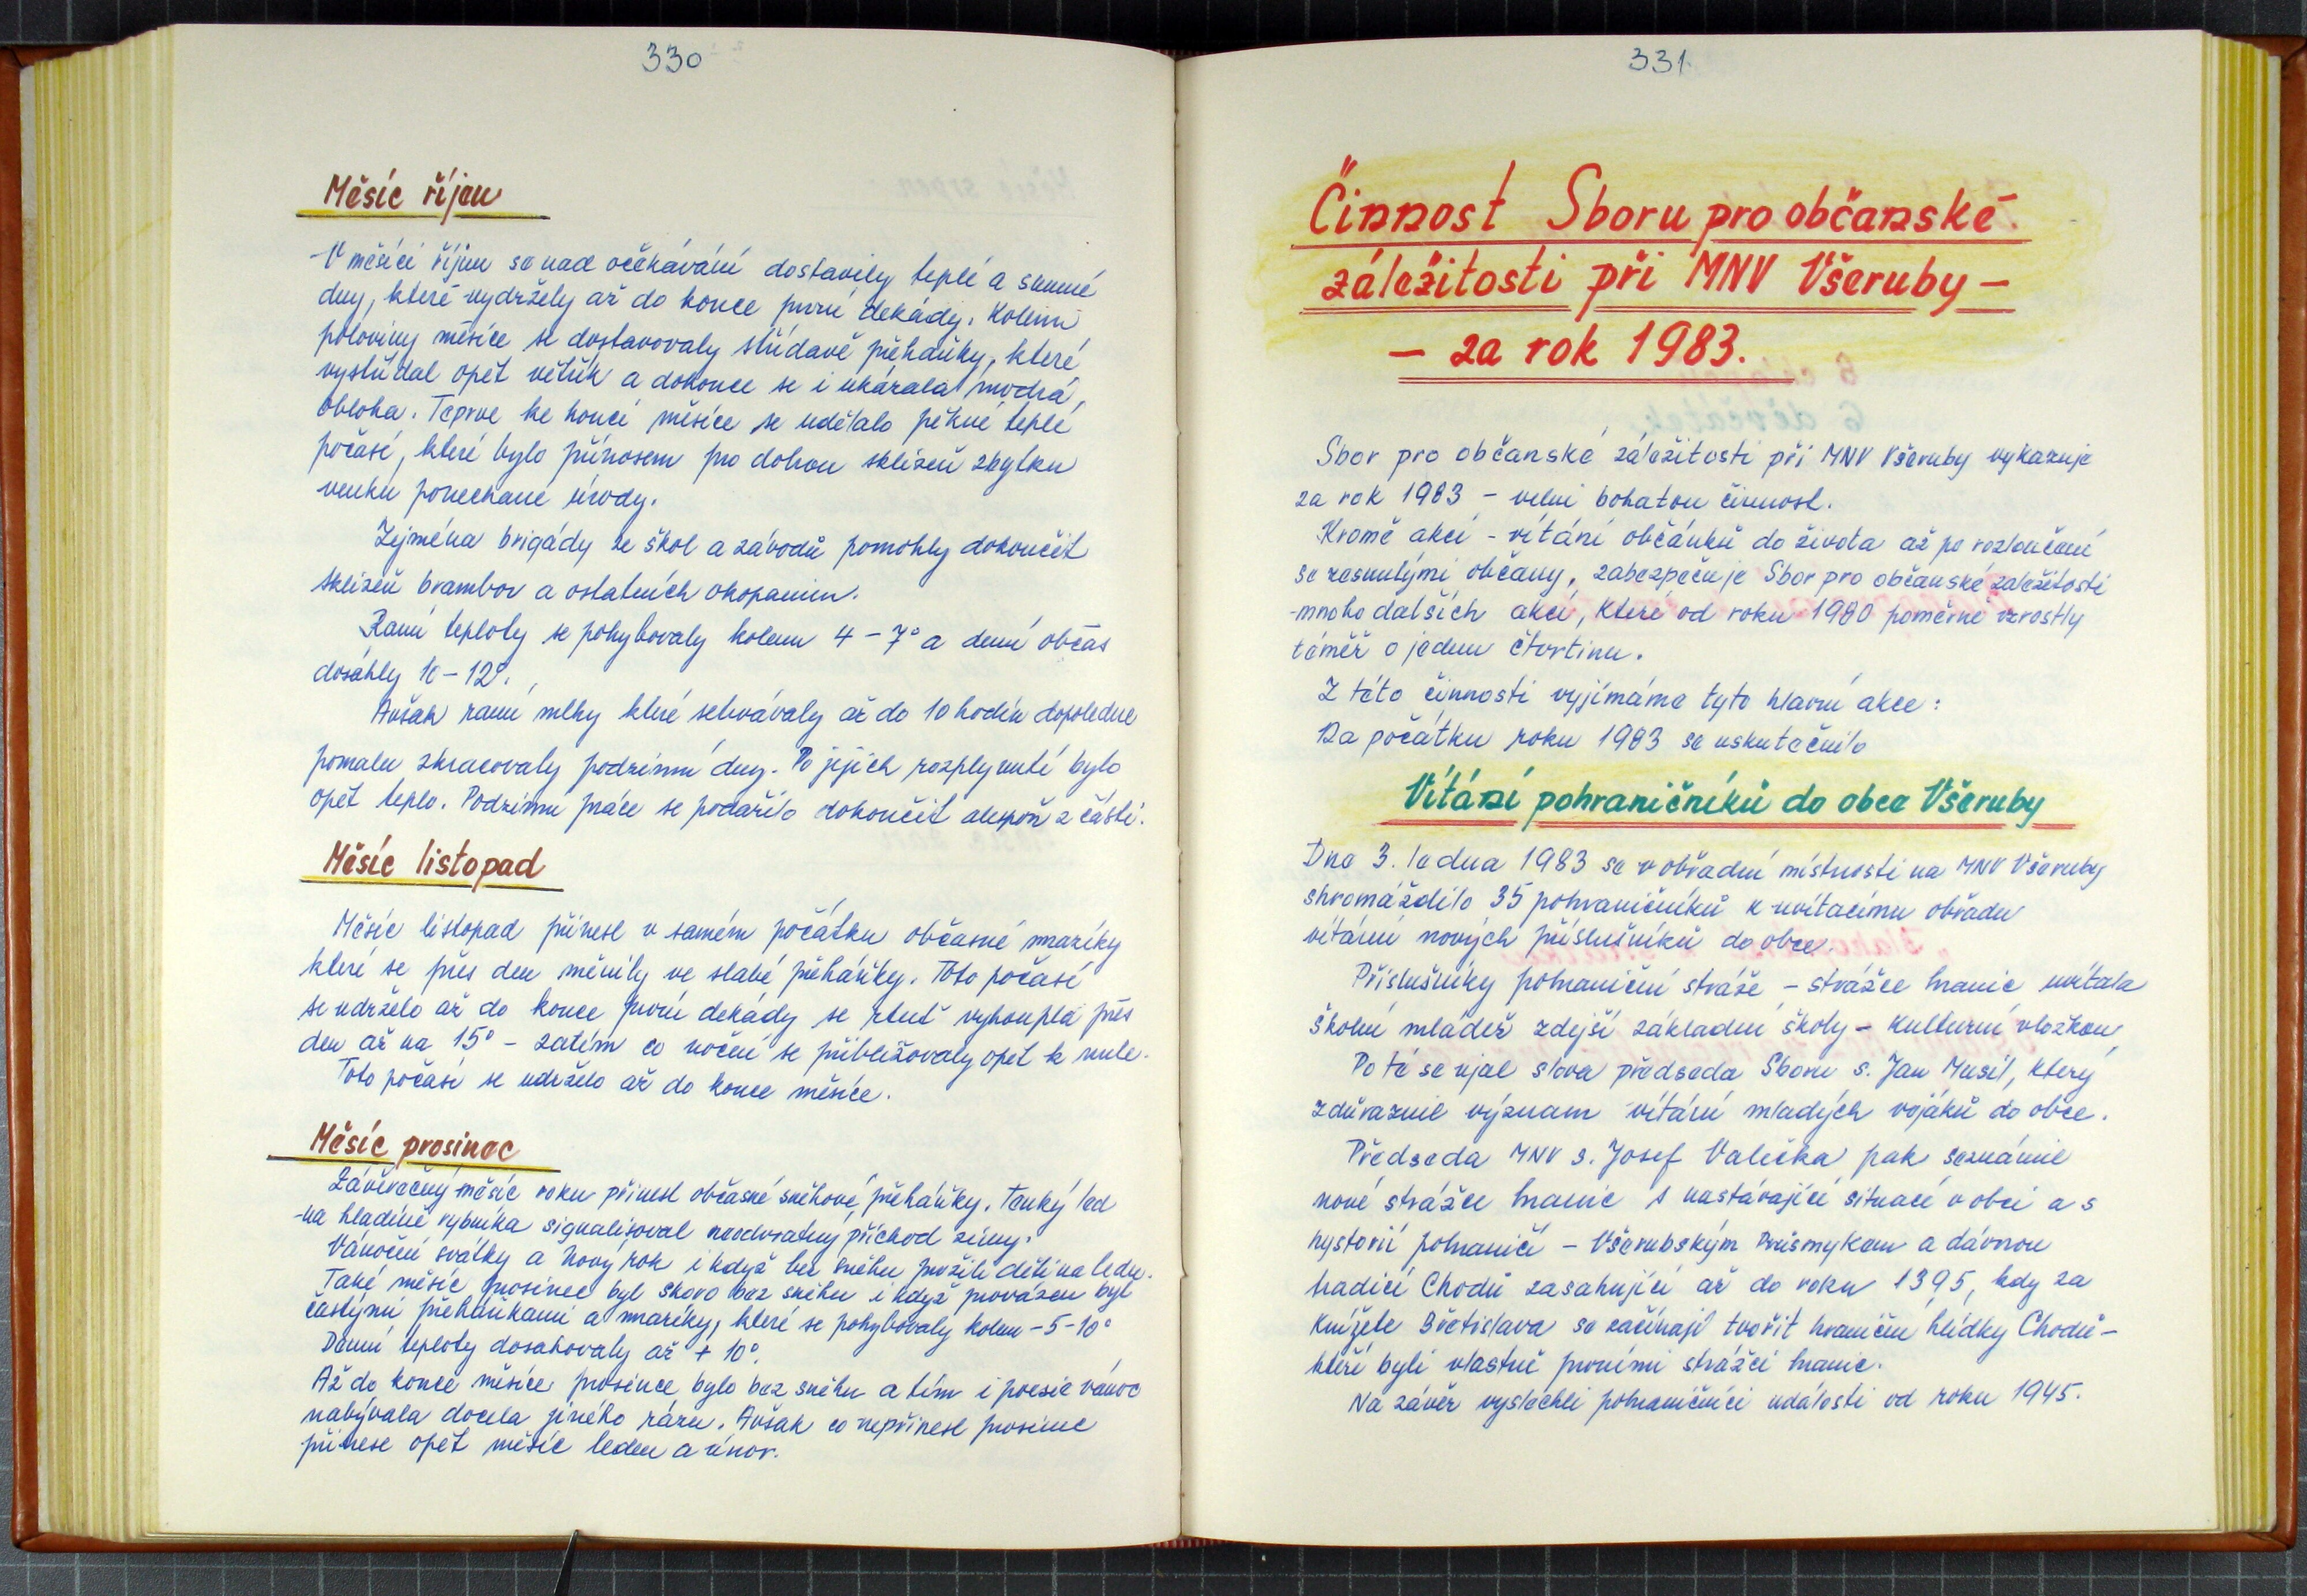 330
Měsíc říjen
V měsíci říjnu se nad očekávání dostavily teplé a sunné
dny, které vydržely až do konce první dekády. Kolem
poloviny měsíce se dostavovaly střídavě přeháňky, které
vystřídal opět větřík a dokonce se i ukázala modrá
obloha. Teprve ke konci měsíce se udělalo pěkné teplé
počasí, které bylo přínosem pro dobrou sklizeň zbytku
venku ponechané úrody.
Zejména brigády ze škol a závodů pomohly dokončit
sklizeň brambor a ostatních okopanin.
Ranní teploty se pohybovaly kolem 4 – 7° a denní občas
dosáhly 10 – 12°.
Avšak ranní mlhy které setrvávaly až do 10 hodin dopoledne
pomalu zkracovaly podzimní dny. Po jejich rozplynutí bylo
opět teplo. Podzimní práce se podařilo dokončit alespoň z části.
Měsíc listopad
Měsíc listopad přinesl v samém počátku občasné mrazíky
které se přes den měnily ve slabé přeháňky. Toto počasí
se udrželo až do konce první dekády se rtuť vyhoupla přes
den až na 15° – zatím co noční se přibližovaly opět k nule.
Toto počasí se udrželo až do konce měsíce.
Měsíc prosinec
Závěrečný měsíc roku přinesl občasné sněhové přeháňky. Tenký led
na hladině rybníka signalisoval neodvratný příchod zimy.
Vánoční svátky a Nový rok i když bez sněhu prožili děti na ledu.
Také měsíc prosinec byl skoro bez sněhu i když provázen byl
častými přeháňkami a mrazíky, které se pohybovaly kolem -5 -10°
Denní teploty dosahovaly až + 10°.
Až do konce měsíce prosince bylo bez sněhu a tím i poesie vánoc
nabývala docela jiného rázu. Avšak co nepřinesl prosinec
přinese opět měsíc leden a únor.
331
Činnost Sboru pro občanské
záležitosti při MNV Všeruby –
– za rok 1983.
Sbor pro občanské záležitosti při MNV Všeruby vykazuje
za rok 1983 – velmi bohatou činnost.
Kromě akcí – vítání občánků do života až po rozloučení
se zesnulými občany, zabezpečuje Sbor pro občanské záležitosti
mnoho dalších akcí, které od roku 1980 poměrně vzrostly
téměř o jednu čtvrtinu.
Z této činnosti vyjímáme tyto hlavní akce:
Na počátku roku 1983 se uskutečnilo
Vítání pohraničníků do obce Všeruby
Dne 3. ledna 1983 se v obřadní místnosti na MNV Všeruby
shromáždilo 35 pohraničníků k uvítacímu obřadu
vítání nových příslušníků do obce.
Příslušníky pohraniční stráže – strážce hranic uvítala
školní mládež zdejší základní školy – kulturní vložkou
Po té se ujal slova předseda Sboru s. Jan Musil, který
zdůraznil význam vítání mladých vojáků do obce.
Předseda MNV s. Josef Valečka pak seznámil
nové strážce hranic s nastávající situací v obci a s
hystorií pohraničí – Všerubským Průsmykem a dávnou
tradicí Chodů zasahující až do roku 1395, kdy za
Knížete Břetislava se začínají tvořit hraniční hlídky Chodů –
kteří byli vlastně prvními strážci hranic.
Na závěr vyslechli pohraničníci události od roku 1945.